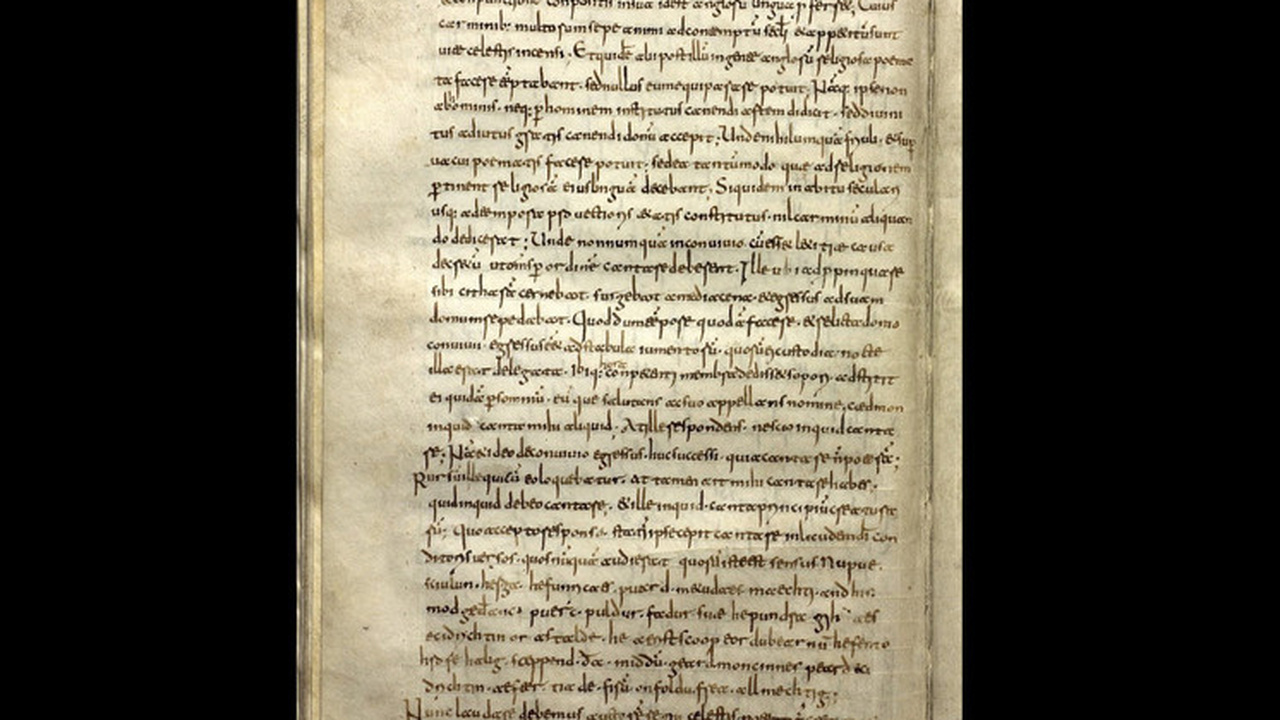 carminib; multorum sepe animi ad contemptū secłi & appetitū sunt
uitæ celestis incensi · Et quidē alii post illū in gente anglorū religiosa poema
ta facere tēptabant · sed nullus eum equiparare potuit; Nāq; ipse non
ab hominib; neq; p hominem institutus canendi artem didicit · sed diuini
tus adiutus gratis canendi donū accepit; Unde nihil umquā friuoli · & sup
uacui poematis facere potuit; sed ea tantūmodo quæ ad religionem
ptinent religiosā eius linguā decebant; Siquidem in abitu seculari
usq; ad tempora puectioris ætatis constitutus · nil carminū aliquan
do didicerat; Unde nonnumquā in conuiuio cū esset letitiæ causa
decretū ut omīs p ordinē cantare deberent · Ille ubi adppinquare
sibi citharā cernebat · surgebat a media cena · & egressus ad suam
domum repedabat · Quod dum tēpore quodā faceret · & relicta domo
conuiuii · egressus eēt ad stabula iumentorū · quorū ei custodia nocte
illa erat delegata · Ibiq; hora conpetenti membra dedisset sopori · adstitit
ei quidā p somniū · eūque salutans ac suo appellans nomine, cædmon
inquid canta mihi aliquid · At ille respondens · nescio inquid canta
re; Nā & ideo de conuiuio egressus · huc successi · quia cantare ñ poterā;
Rursū ille qui cū eo loquebatur · at tamen ait mihi cantare habes ·
quid inquid debeo cantare · & ille inquid · canta principiū creatura
rū; Quo accepto responso · statī ipse cepit cantare in laudem dī con
ditoris uersos · quos nūquā audierat quorū iste est sensus Nu pue ·
sciulun · herga · hefunricaes · puard · metudaes maechti · and his
modgedanc · puerc · puldur · fadur sue he pundra gihuaes
eci drichtin or astalde · he aerist scoop eordu bearnū hefen to
hrofe halig · sceppend · đa middū·geard moncinnes peard eci
drichtin · aefter · tiade · firū · on foldu frea · allmechtig ·
Nunc laudare debemus auctorē regni celestis